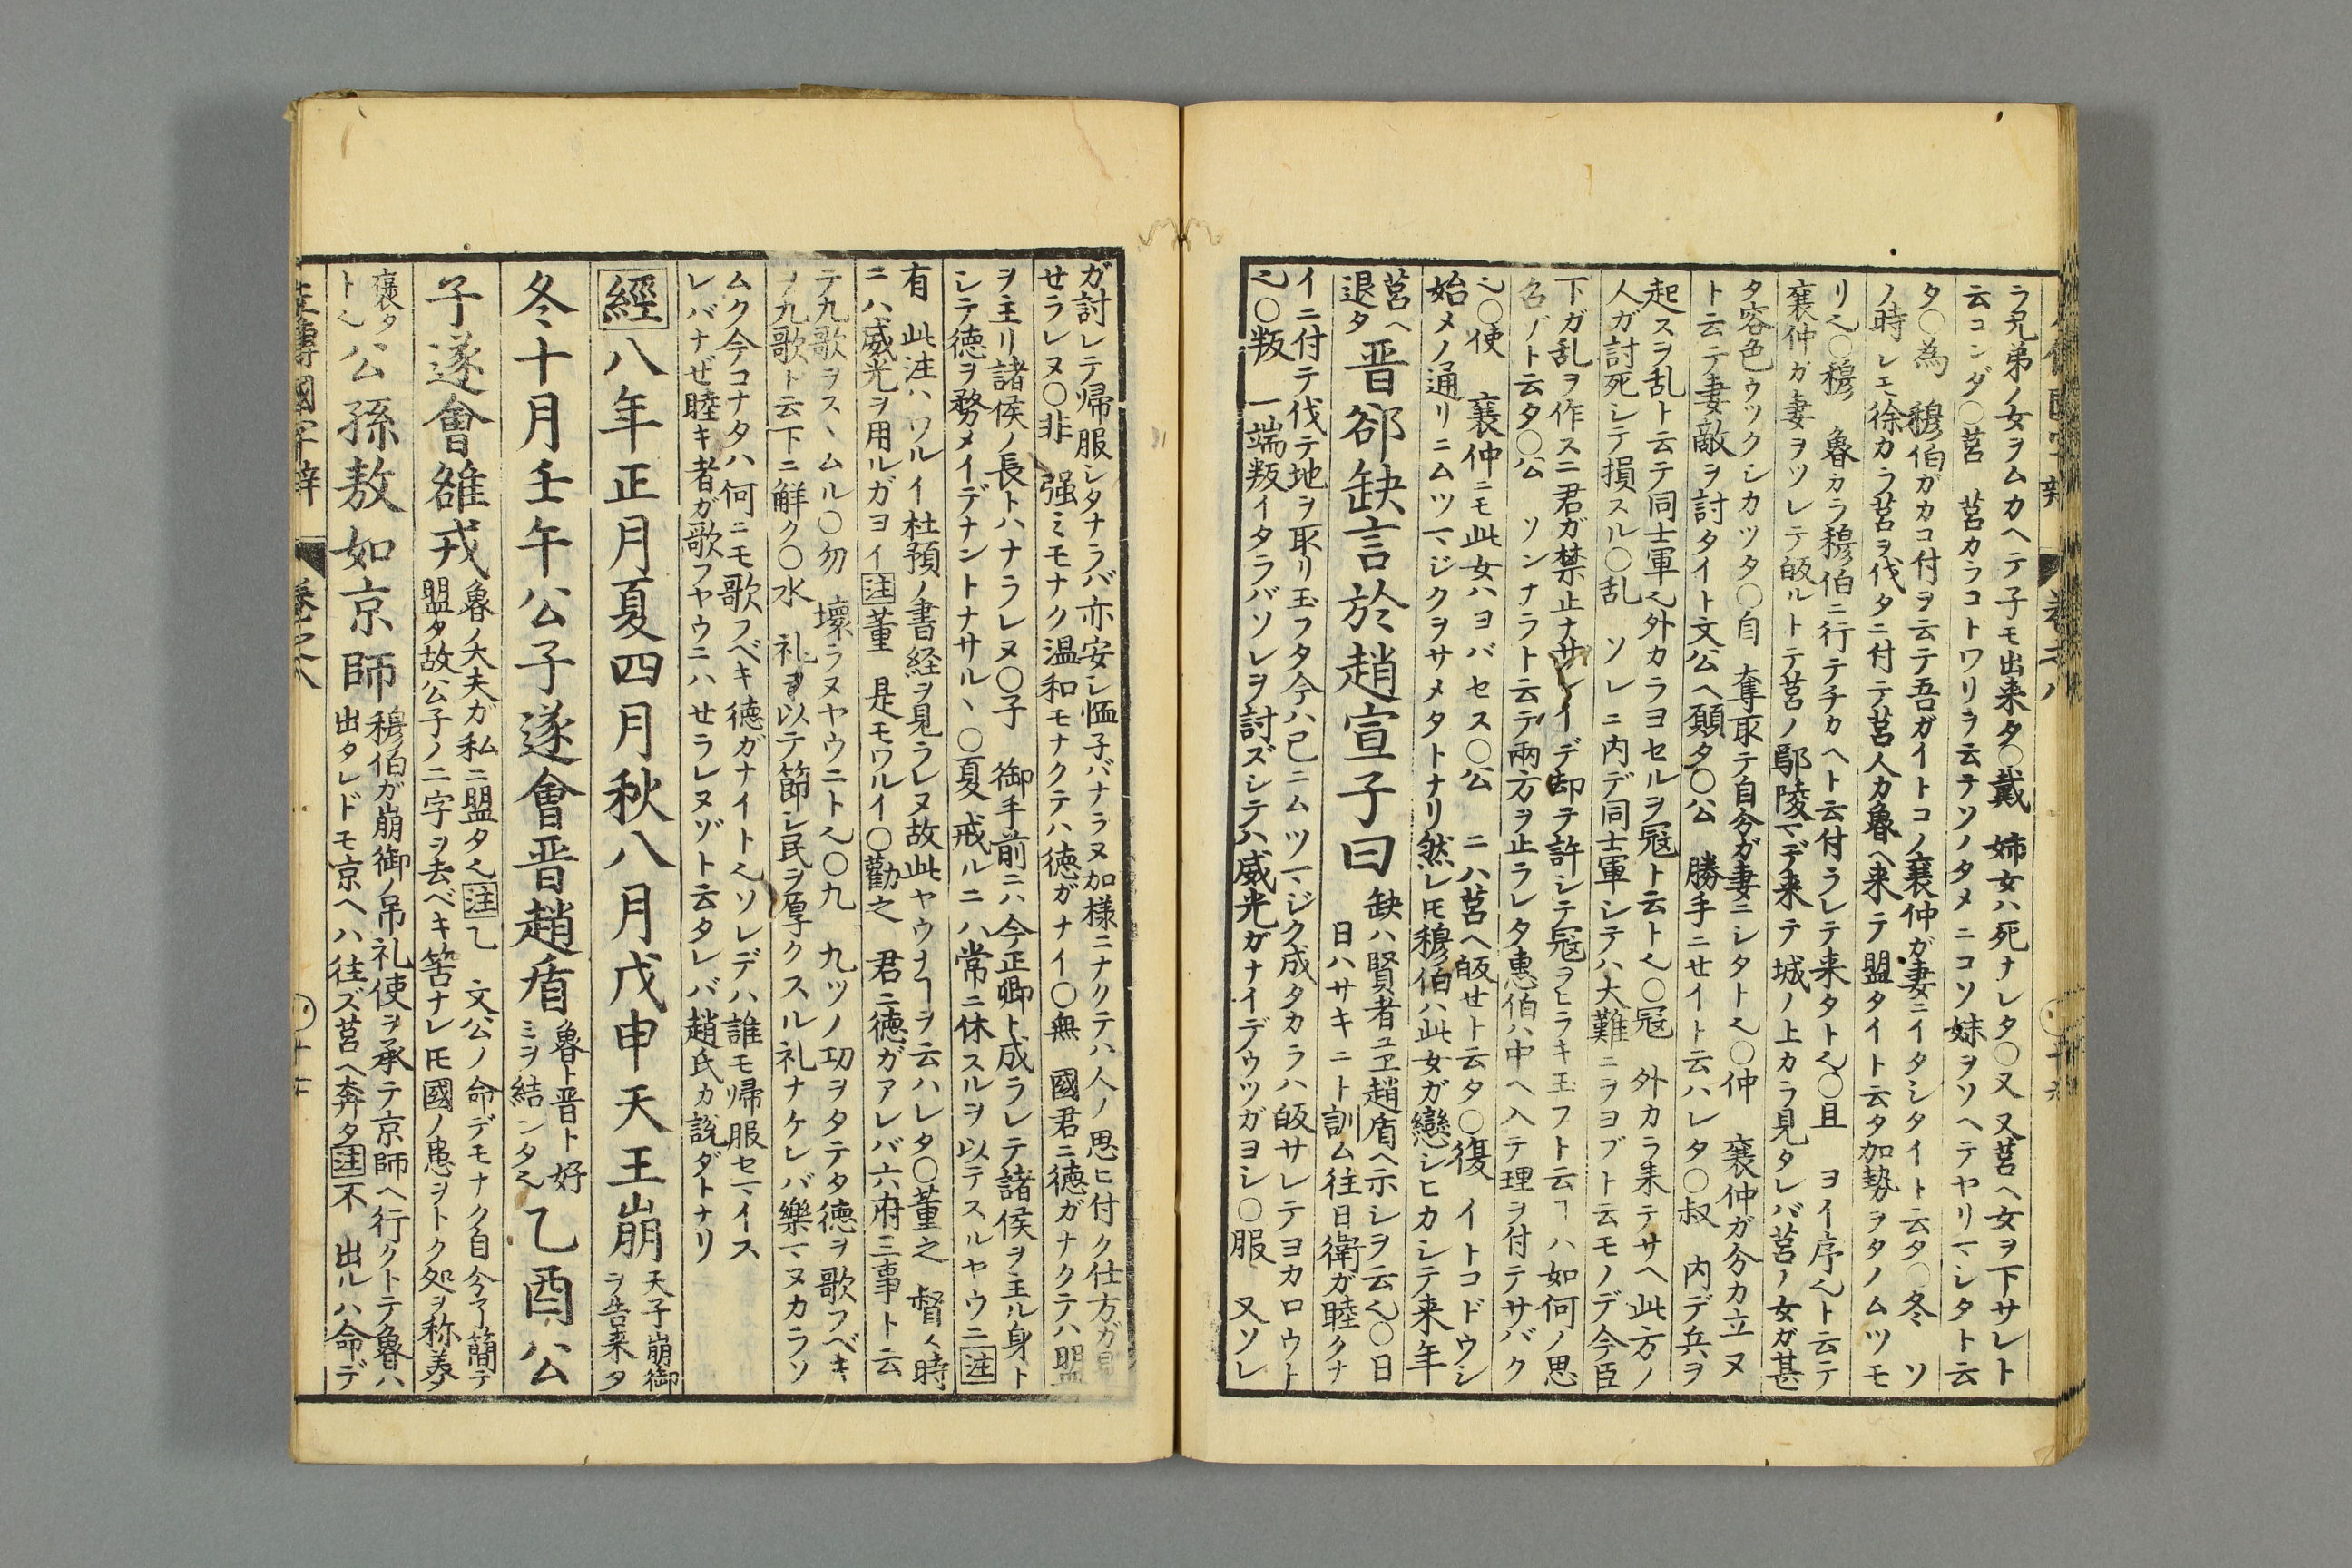 ラ兄弟ノ女ヲムカヘテ子モ出来タ○戴 姉女ハ死ナレタ○又 又莒ヘ女ヲ下サレト
云コンダ○莒 莒カラコトワリヲ云ヲソノタメニコソ妹ヲソヘテヤリマシタト云
タ○為 穆伯ガカコ付ヲ云テ吾ガイトコノ襄仲ガ妻ニイタシタイト云タ○冬 ソ
ノ時 レヱ徐カラ莒ヲ伐タニ付テ莒人カ魯ヘ来テ盟タイト云タ加勢ヲタノムツモ
リ也○穆 魯カラ穆伯ニ行テチカヘト云付ラレテ来タト也○且 ヨイ序也ト云テ
襄仲ガ妻ヲツレテ皈ルトテ莒ノ鄢陵マデ来テ城ノ上カラ見タレバ莒ノ女ガ甚
タ容色ウツクシカツタ○自 奪取テ自今ガ妻ニシタト也○仲 襄仲ガ今カ立ヌ
ト云テ妻敵ヲ討タイト文公ヘ願タ○公 勝手ニセイト云ハレタ○叔 内デ兵ヲ
起スヲ乱ト云テ同士軍也外カラヨセルヲ冦ト云ト也○冦 外カラ来テサヘ此方ノ
人ガ討死シテ損スル○乱 ソレニ内デ同士軍シテハ大難ニヲヨブト云モノデ今臣
下ガ乱ヲ作スニ君ガ禁止ナサレイデ却テ許シテ冦ヲヒラキ玉フト云ヿハ如何ノ思
召ゾト云タ○公 ソンナラト云テ兩方ヲ止ラレタ惠伯ハ中ヘ入テ理ヲ付テサバク
也○使 襄仲ニモ此女ハヨバセス○公 ニハ莒ヘ皈せト云タ○復 イトコドウシ
始メノ通リニムツマジクヲサメタトナリ然レ𪜈穆伯ハ此女ガ戀シヒカシテ来年
莒ヘ
退タ
晋郤缺言於趙宣子曰
缺ハ賢者ユヱ趙盾ヘ示シヲ云也○日
日ハサキニト訓ム往日衛ガ睦クナ
イニ付テ伐テ地ヲ取リ玉フタ今ハ已ニムツマジク成タカラハ皈サレテヨカロウト
也○叛 一端叛イタラバソレヲ討ズシテハ威光ガナイデウツガヨシ○服 又ソレ
ガ討レテ帰服シタナラバ亦安シ恤子バナラヌ加様ニナクテハ人ノ思ヒ付ク仕方ガ
せラレヌ○非 强ミモナク温和モナクテハ徳ガナイ○無 國君ニ徳ガナクテハ盟
ヲ主リ諸侯ノ長トハナラレヌ○子 御手前ニハ今正卿ト成ラレテ諸侯ヲ主ル身ト
シテ徳ヲ務メイデナントナサルヽ○夏 戒ルニハ常ニ休スルヲ以テスルヤウニ注
有 此注ハワルイ杜預ノ書経ヲ見ラレヌ故此ヤウナヿヲ云ハレタ○董之 督ス時
ニハ威光ヲ用ルガヨイ注董 是モワルイ○勸之 君ニ徳ガアレバ六府三事ト云
テ九歌ヲスヽムル○勿 壞ラヌヤウニト也○九 九ツノ功ヲタテタ徳ヲ歌フベキ
ヲ九歌ト云下ニ觧ク○水 礼ヲ以テ節シ民ヲ厚クスル礼ナケレバ樂マヌカラソ
ムク今コナタハ何ニモ歌フベキ徳ガナイト也ソレデハ誰モ帰服セマイス
レバナゼ睦キ者ガ歌フヤウニハせラレヌゾト云タレバ趙氏カ説ダトナリ
經八年正月夏四月秋八月戊申天王崩
天子崩御
ヲ告来タ
冬十月壬午公子遂會晋趙盾
魯ト晋ト好
ミヲ結ンタ也
乙酉公
子遂會雒戎
魯ノ大夫ガ私ニ盟タ也注乙 文公ノ命デモナク自今了簡テ
盟タ故公子ノ二字ヲ去ベキ筈ナレ𪜈國ノ患ヲトク処ヲ称美タ
褒タ
ト也
公孫敖如京師
穆伯ガ崩御ノ吊礼使ヲ承テ京師ヘ行クトテ魯ハ
出タレドモ京ヘハ往ズ莒ヘ奔タ注不 出ルハ命デ
左傳國字辯 巻之八